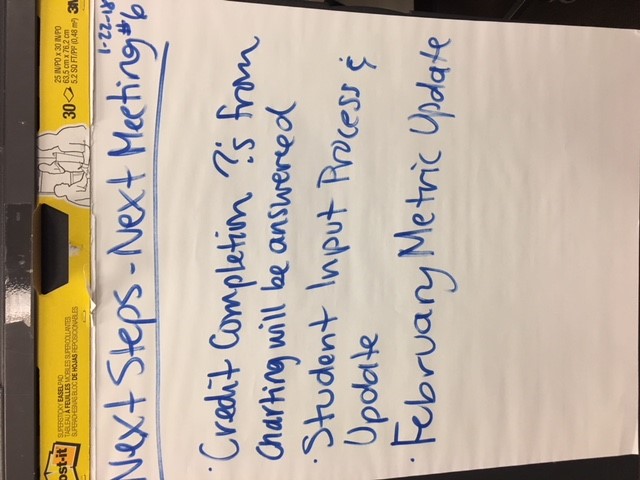 Post-it
SUPERSTICKY EASEL PAD
TABLEAU À FEUILLES MOBILES SUPERCOLLANTES
SUPERADHESIVAS BLOC DE HOJAS REPOSICIONABLES
30
25 IN/PO x 30 IN/PO
63,5 cm x 76,2 cm
5.2 SQ FT/PP (0,48 m²)
3M
1-22-18
Next Steps - Next Meeting #6
· Credit Completion ?'s from
Charting will be answered
· Student Input Process &
Update
· February Metric Update